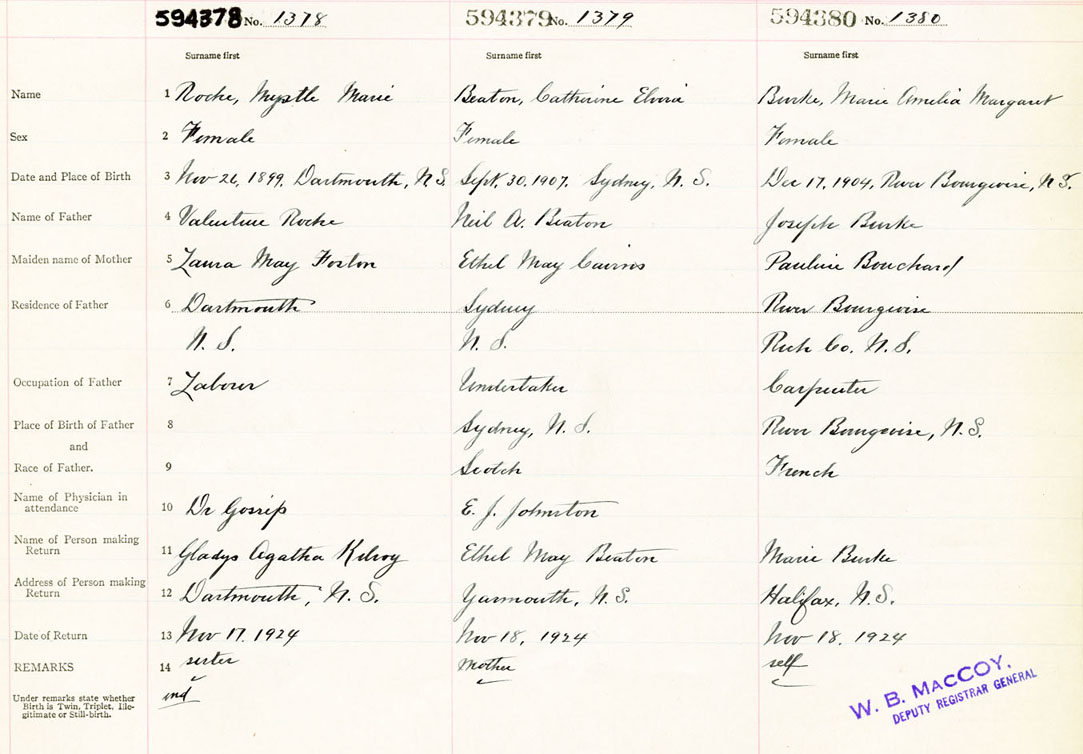 594378 No. 1378 594379 No. 1379 594380 No. 1380
Surname first Surname first Surname first
Name 1 Rocke, Myrtle Marie Beaton, Catherine Elvira Burke, Marie Amelia Margaret
Sex 2 Female Female Female
Date and Place of Birth 3 Nov 26, 1899, Dartmouth, N.S. Sept. 30, 1907. Sydney, N.S. Dec 17, 1904, River Bourgeoise, N.S.
Name of Father 4 Valentine Rocke Neil A. Beaton Joseph Burke
Maiden name of Mother 5 Laura May Foston Ethel May Cairns Pauline Bouchard
Residence of Father 6 Dartmouth Sydney River Bourgeoise
N. S. N. S. Rich Co. N.S.
Occupation of Father 7 Labour Undertaker Carpenter
Place of Birth of Father 8 Sydney, N.S. River Bourgeoise, N.S.
and
Race of Father. 9 Scotch French
Name of Physician in
attendance 10 Dr Gossip E. J. Johnston
Name of Person making
Return 11 Gladys Agatha Kilroy Ethel May Beaton Marie Burke
Address of Person making
Return 12 Dartmouth, N.S. Yarmouth, N.S. Halifax, N.S.
Date of Return 13 Nov 17, 1924 Nov 18, 1924 Nov 18. 1924
REMARKS 14 sister mother self
Under remarks state whether
Birth is Twin, Triplet, Ille-
gitimate or Still-birth.
ind
W. B. MacCOY,
DEPUTY REGISTRAR GENERAL